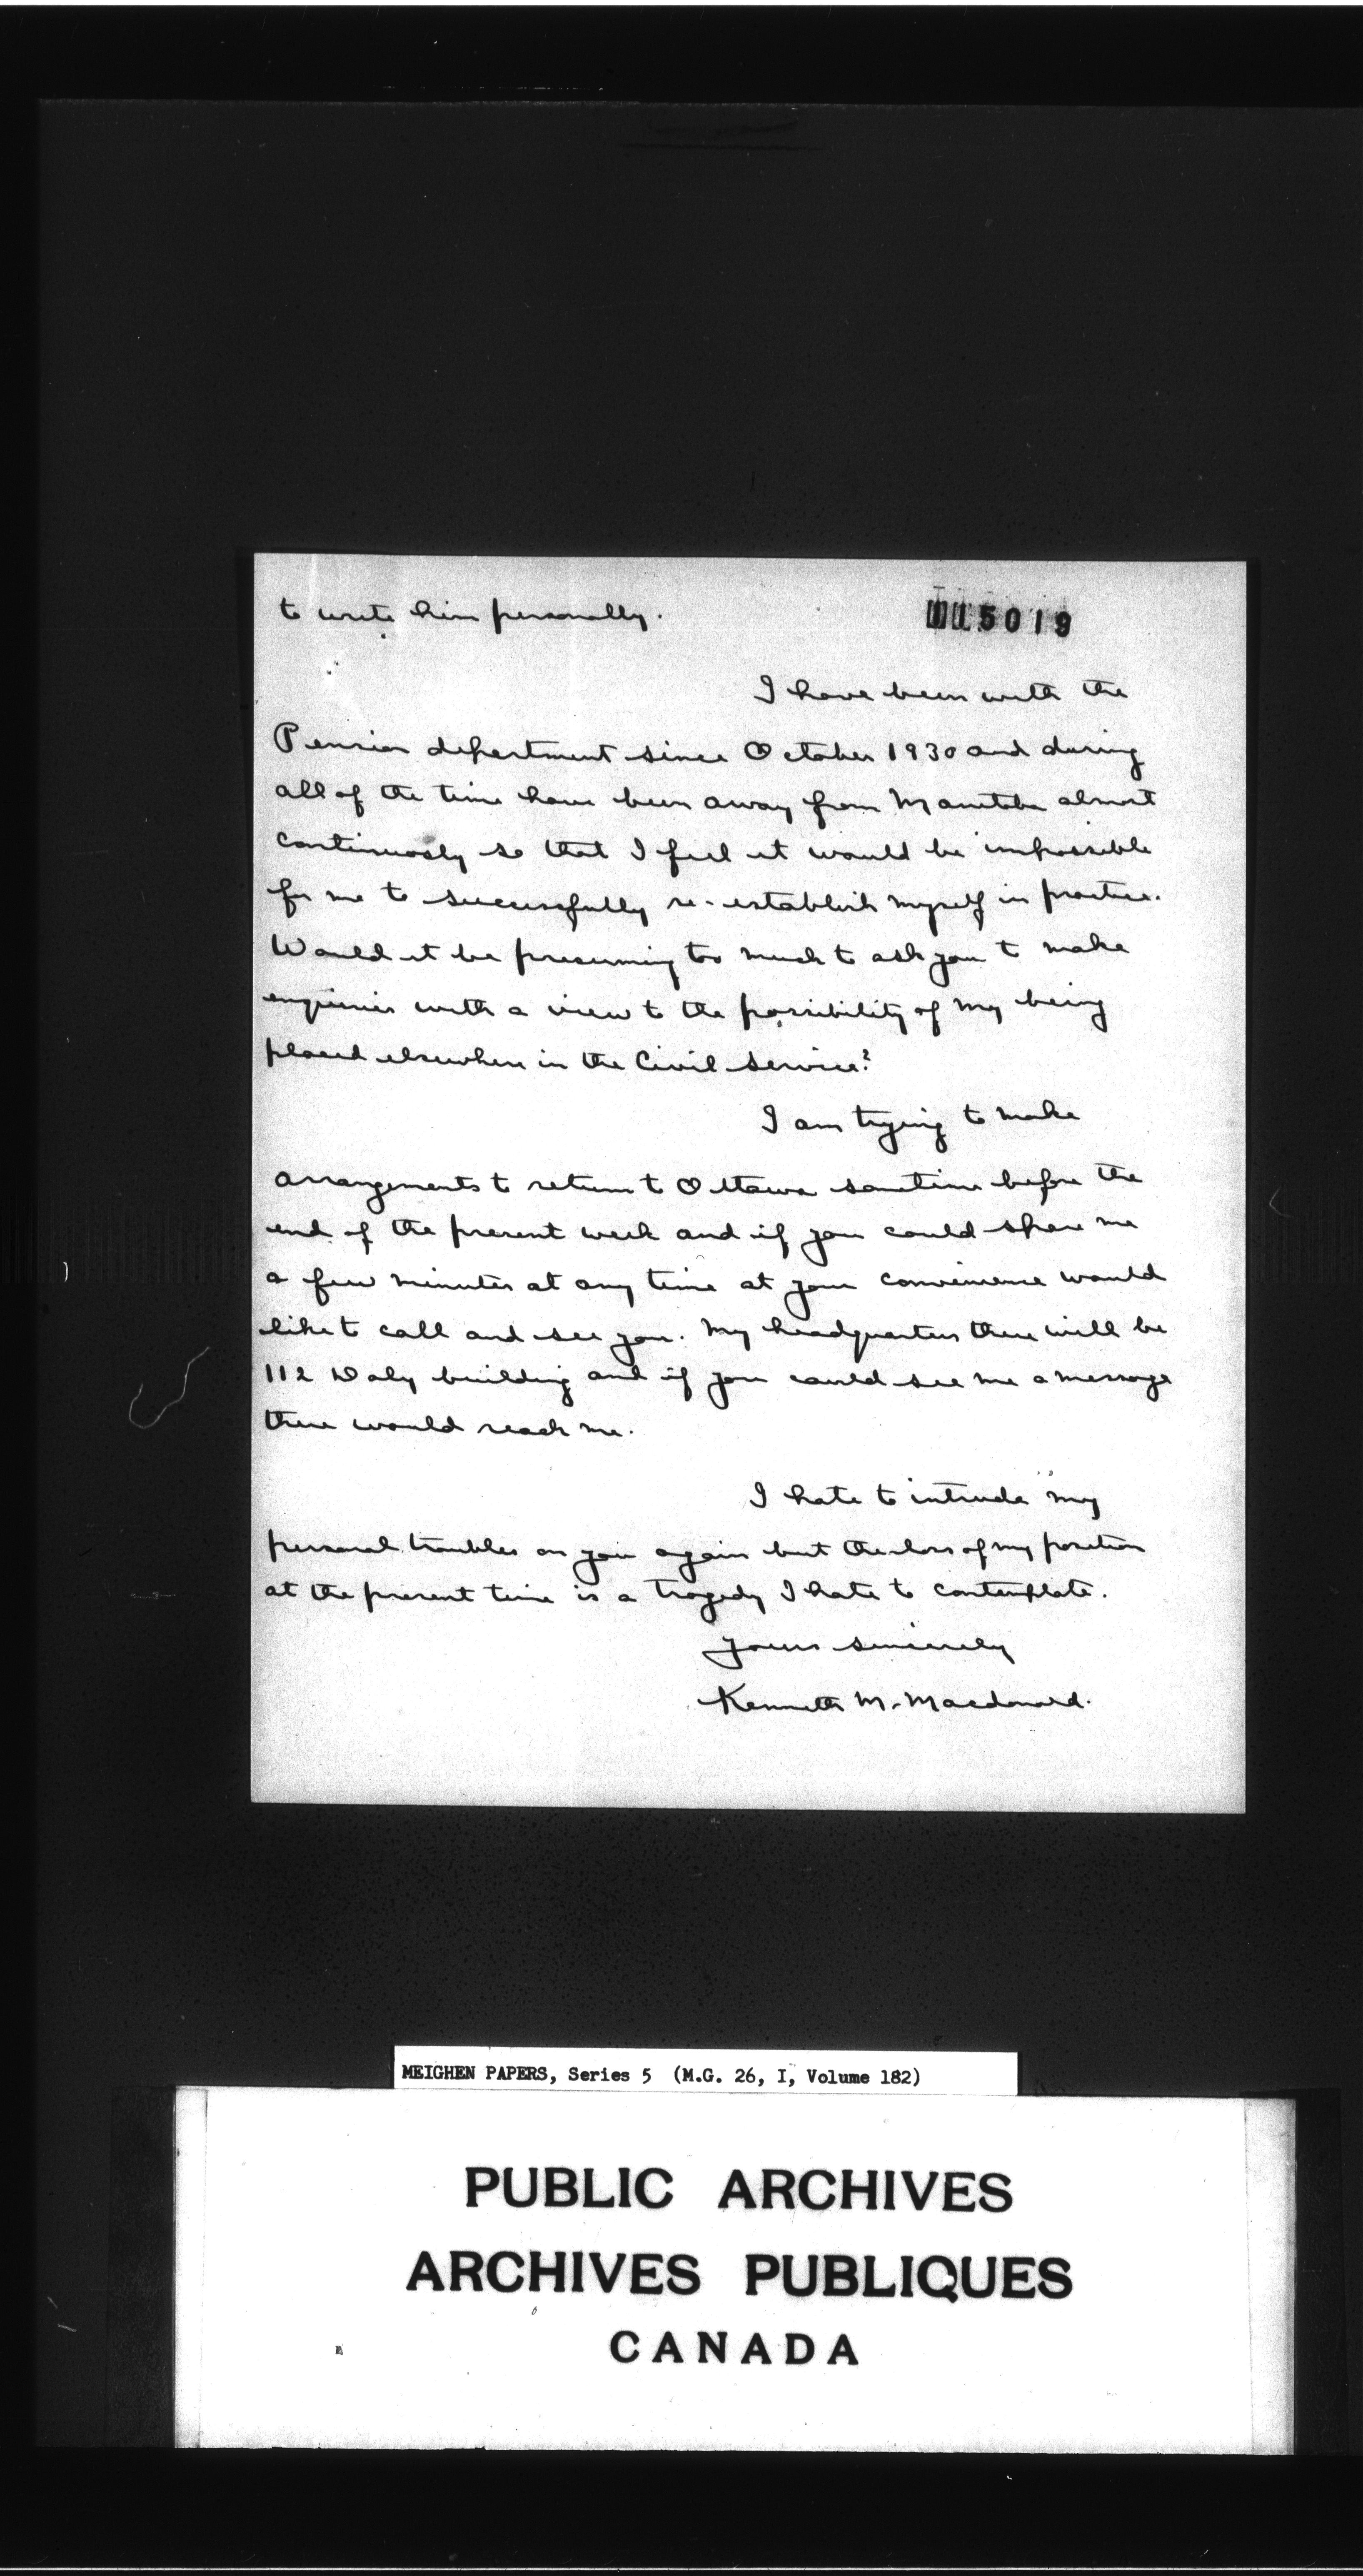 to write him personally.
5019
I have been with the
Pension department since October 1930 and during
all of the time have been away from Manitoba almost
continuously so that I feel it would be impossible
for me to successfully re-establish myself in practice.
Would it be presuming too much to ask you to make
enquiries with a view to the possibility of my being
placed elsewhere in the Civil Service?
I am trying to make
arrangements to return to Ottawa sometime before the
end of the present week and if you could spare me
a few minutes at any time at your convenience would
like to call and see you. My headquarters there will be
112 Daly building and if you could see me a message
there would reach me.
I hate to intrude my
personal troubles on you again but the loss of my position
at the present time is a tragedy I hate to contemplate.
Yours sincerely
Kenneth M. Macdonald.
MEIGHEN PAPERS, Series 5 (M.G. 26, I, Volume 182)
PUBLIC ARCHIVES
ARCHIVES PUBLIQUES
CANADA